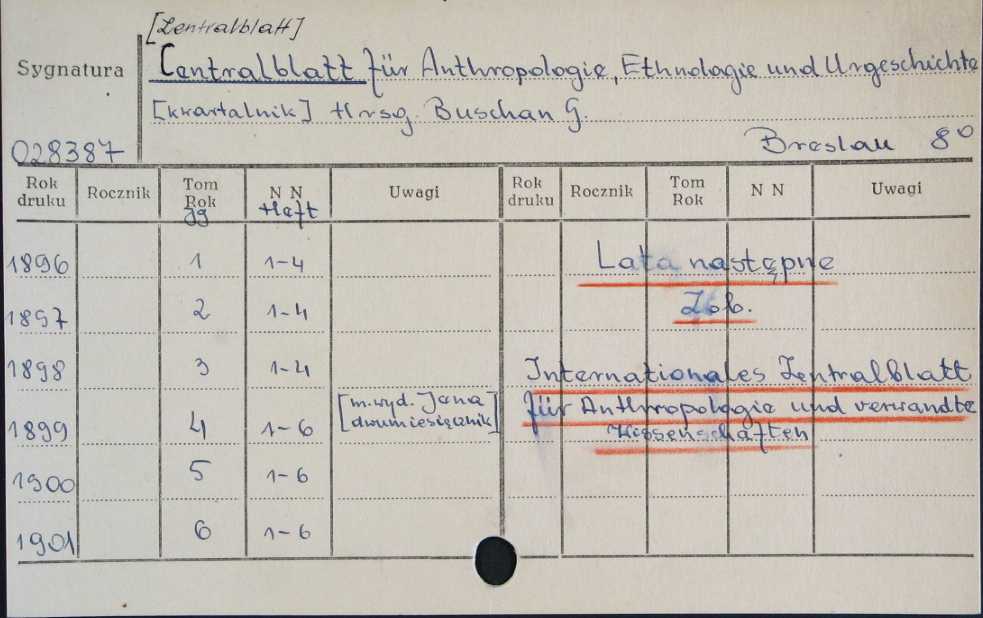 [Zentralblatt]
Sygnatura
Centralblatt für Anthropologie, Ethnologie und Urgeschichte
[kwartalnik] Hrsg. Buschan G.
028387
Breslau 8°
Rok druku Rocznik Tom Rok N N Uwagi Rok druku Rocznik Tom Rok N N Uwagi
Jg Heft
1896 1 1-4
Lata następne
1897 2 1-4
Zob.
1898 3 1-4
Internationales Zentralblatt
1899 4 1-6 [m.wyd. Jena dwumiesięcznik]
für Anthropologie und verwandte
Wissenschaften
1900 5 1-6
1901 6 1-6